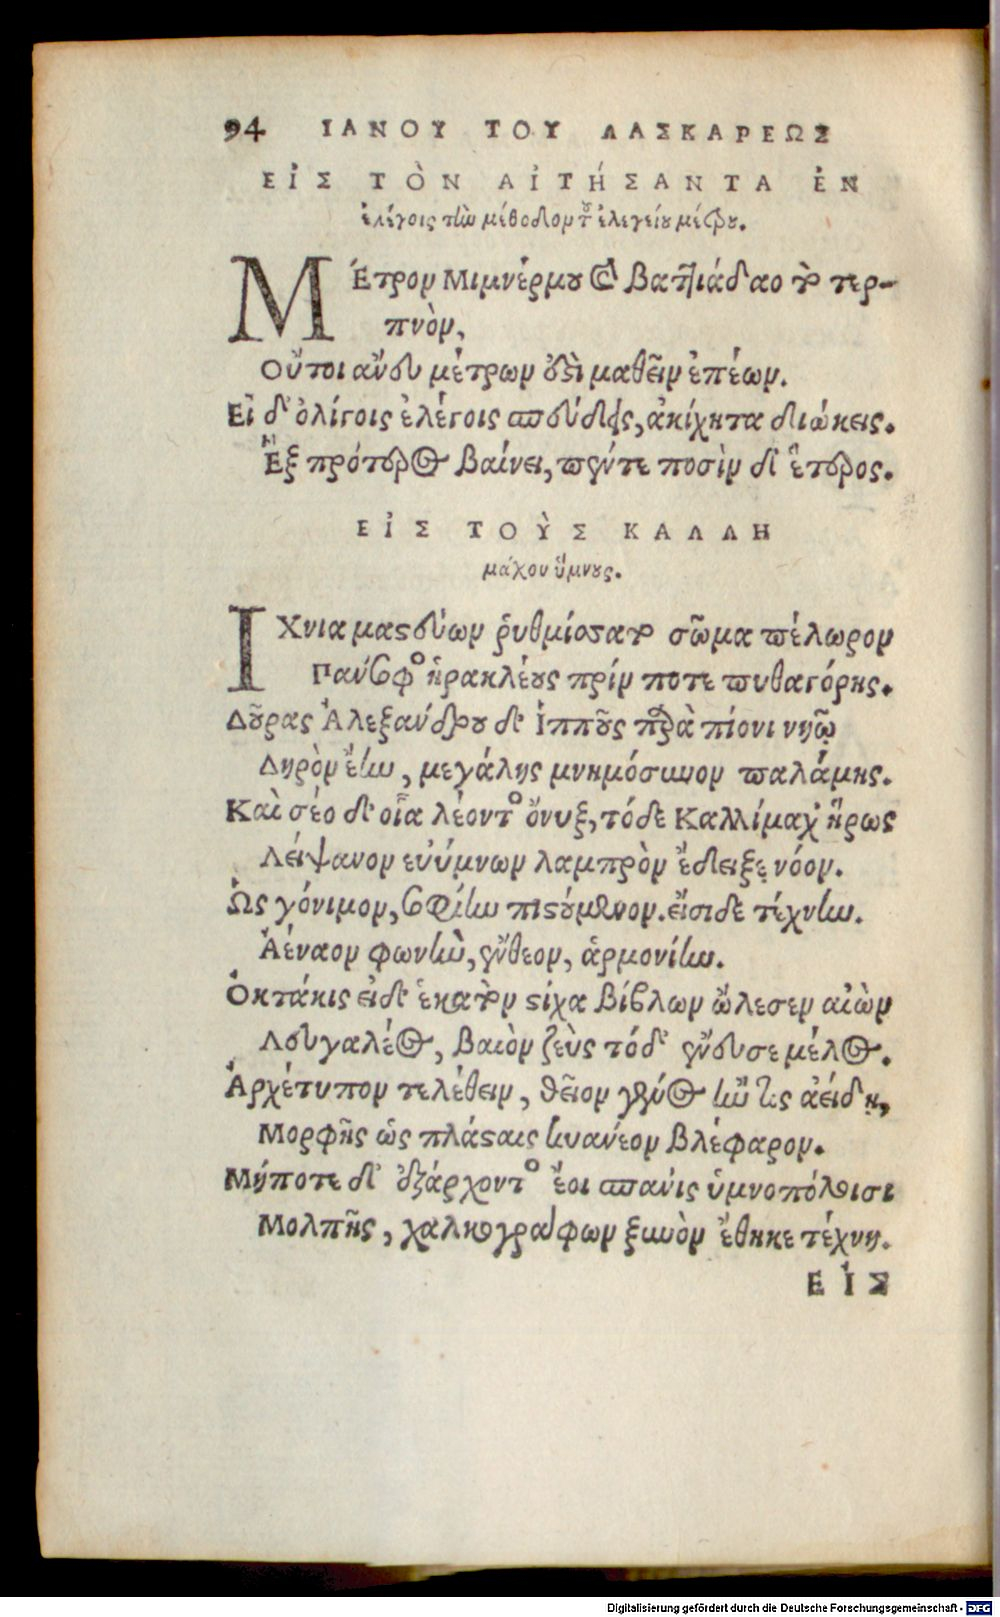 94 ΙΑΝΟΥ ΤΟΥ ΛΑΣΚΑΡΕΩΣ
ΕἰΣ ΤὸΝ ΑἰΤήΣΑΝΤΑ ἐΝ
ἐλέγοις τὴν μέθοδον τοῦ ἐλεγείου μέτρου.
ΜΈτρον Μιμνέρμου καὶ Βαττιάδαο τὸ τερ-
πνὸν,
Οὔτοι ἄνευ μέτρων ὅδὶ μαθεῖν ἐπέων.
Εἰ δ' ὀλίγοις ἐλέγοις σπεύδεις, ἀκίχητα διώκεις.
Ἓξ πρότερος βαίνει, πέντε ποσὶν δ' ἕτερος.
ΕἰΣ ΤΟὺΣ ΚΑΛΛΗ
μάχου ὕμνους.
ΙΧνια μαστεύων ῥυθμίσσατο σῶμα πέλωρον
Πάνσοφος ἡρακλέους πρίν ποτε πυθαγόρης.
Δῦρας Ἀλεξάνδρου δὲ Ἱπποῦς παρὰ πίονι νηῷ
Δηρὸν ἔην, μεγάλης μνημόσυνον παλάμης.
Καὶ σέο δ' οἷα λέοντος ὄνυξ, τόδε Καλλίμαχ' ἥρως
Λείψανον εὐύμνων λαμπρὸν ἔδειξε νόον.
Ὡς γόνιμον, σοφίην πιστούμενον. εἴσιδε τέχνην.
Ἀέναον φωνὴν, ἔνθεον, ἁρμονίην.
Ὀκτάκις εἰ δ' ἑκατὸν στίχα βίβλων ὤλεσεν αἰὼν
Λευγαλέος, βαιὸν ζεὺς τόδ' ἔνευσε μέλος.
Ἀρχέτυπον τελέθειν, θεῖον γένος ἤν τις ἀείδῃ,
Μορφῆς ὡς πλάσταις κυανέον βλέφαρον.
Μήποτε δ' ἐξάρχοντος ἔοι σπάνις ὑμνοπόλοισι
Μολπῆς, χαλκογράφων ξυνὸν ἔθηκε τέχνη.
ΕἰΣ
Digitalisierung gefördert durch die Deutsche Forschungsgemeinschaft - DFG